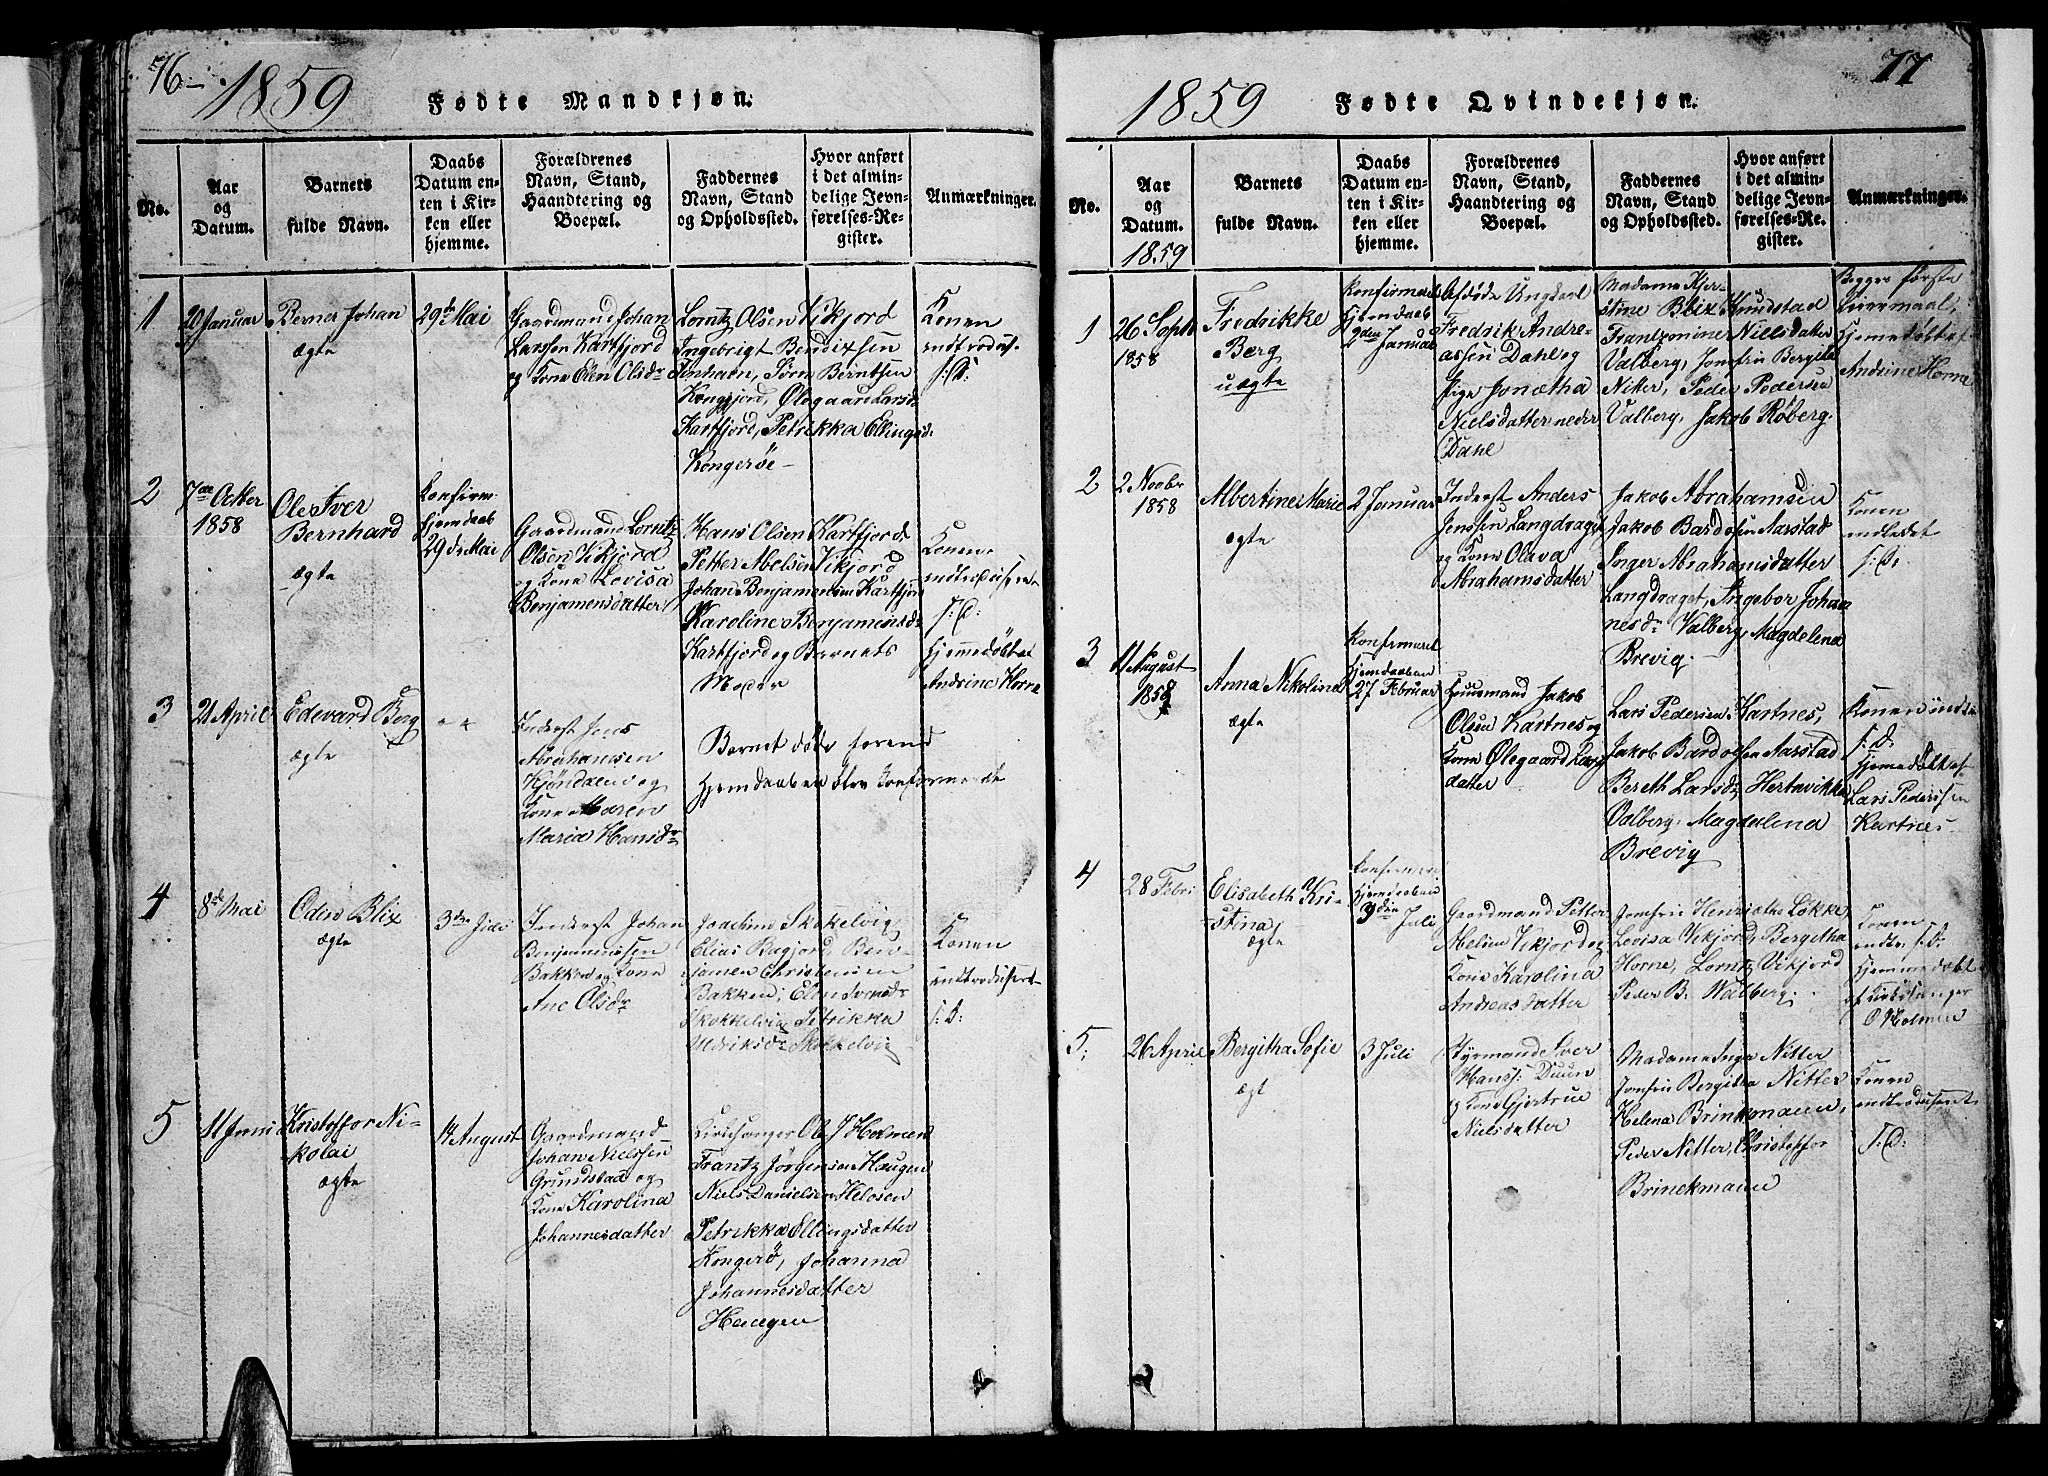 76
1859 Fødte Mandkjøn.
No.
Aar
og
Datum.
Barnets
fulde Navn.
Daabs
Datum en-
ten i Kir-
ken eller
hjemme.
Forældrenes
Navn, Stand,
Haandtering og
Boepæl.
Faddernes
Navn, Stand
og Opholdssted.
Hvor anført
i det almin-
delige Jevn-
førelses-Re-
gister.
Anmærkninger.
1
20 Januar
Berner Johan
ægte
29de Mai
Gaardmand Johan
Larssen Kartfjord
og Kone Elen Olsdr
Lorntz Olsen Vikjord
Ingebrigt Bendixsen
Søren Berntsen
Olegaard Larsd.
Kartfjord, Petrikka Ellingsd.
Kongerøe
Konen
I: D:
2
7de Octber
1858
Ole Iver
Bernhard
ægte
Konfirm.
Hjemdaab
29de Mai
Gaardmand Lorntz
Olsen Vikjord
og Kone Lovisa
Benjamensdatter
Hans Olsen Kartfjord
Petter Abelsen Vikjord
Johan Benjamensen Kartfjord
Karoline Benjamensd.
Kartfjord og Barnets
Moder
Konen
I: D:
Hjemmedøbt af
Andrine Horne
3
21 April
Edevard Berg
ægte
" "
Inderst Jens
Abrahamsen
Kjøndalen og
Kone Maren
Maria Hansdr
Barnet døde forend
Hjemdaaben blev konfirmerede
4
8de Mai
Odin Blix
ægte
3die Juli
Inderst Johan
Benjaminssen
Bakken og Kone
Ane Olsdr
Joachim Skokkelvig
Elias Bagjord, Ben-
jamen Christensen
Bakken, Elen Svendsd.
Skokkelvig Petrikka
Ulriksdr Skokkelvig
Konen
introduseret
I: D:
5
11 Juni
Kristoffor Ni-
kolai
ægte
14 August
Gaardmand
Johan Nielssen
Grundstad og
Kone Karolina
Johannesdatter
Kirkesanger Ole J Holmen
Frantz Jørgensen Haugen
Niels Danielsen Helosen
Petrikka Ellingsdatter
Kongerö, Johanna
Johannesdatter
Haugen
77
1859 Fødte Qvindekjøn.
No.
Aar
og
Datum.
1859
Barnets
fulde Navn.
Daabs
Datum en-
ten i Kir-
ken eller
hjemme.
Forældrenes
Navn, Stand,
Haandtering og
Boepæl.
Faddernes
Navn, Stand
og Opholdssted.
Hvor anført
i det almin-
delige Jevn-
førelses-Re-
gister.
Anmærkninger.
1
26 Septb
1858
Fredrikke
Berg
uægte
Konfirmeret
Hjemdaab
2den Januar
Afdøde Ungkarl
Fredrik Andre-
assen Dahl og
Pige Jonetha
Nielsdatter nedre
Dahl
Madame Kjer-
stine Blix Knudstad
Frantzmine Nielsdatter
Valberg, Jomfru Bergita
Niter, Peder Pedersen
Valberg, Jakob Røberg.
Begges første
Leiermaal,
Hjemmedøbt af
Andrine Horne
2
2 Novbr
1858
Albertine Marie
ægte
2 Januar
Inderst Anders
Jenssen Langdraget
og Kone Olava
Abrahamsdatter
Jakob Abrahamsen
Jakob Bardosen Aarstad
Inger Abrahamsdatter
Langdraget, Ingebor Johan
nesdr Valberg, Magdelena
Brevig
Konen
indledet
I: D:
3
11 August
1858
Anna Nikolina
ægte
Konfirmeret
Hjemdaaben
27 Februar
Huusmand Jakob
Olsen Kartnes og
Kone Olegaard Lars
datter
Lars Pedersen Kartnes,
Jakob Bardolsen Aarstad
Bereth Larsdr, Hertevikka
Valberg, Magdelena
Brevig
Konen indl.
I: D:
Hjemmedøbt af
Lars Pedersen
Kartnes
4
28 Febr
Elisabeth Kri-
stina
ægte
Konfirmeret
Hjemdaaben
3die Juli
Gaardmand Petter
Abelsen Vikjord og
Kone Karolina
Andreasdatter
Jomfru Henriethe Løkke
Lovisa Vikjord, Bergitha
Horne, Lorntz Vikjord
Peder B. Valberg.
Konen
introd. I: D:
Hjemmedøbt
af Kirkesanger
O Holmen
5
26 April
Bergitha Sofie
ægt
3 Juli
Styrmand Iver
Hanss: Duun
og Kone Gjertrue
Nielsdatter
Madame Inga Nitter
Jomfru Bergitha Nitter
Helena Brinkmann,
Peder Nitter, Christoffor
Brinckmann
Konen
introduseret
I: D: